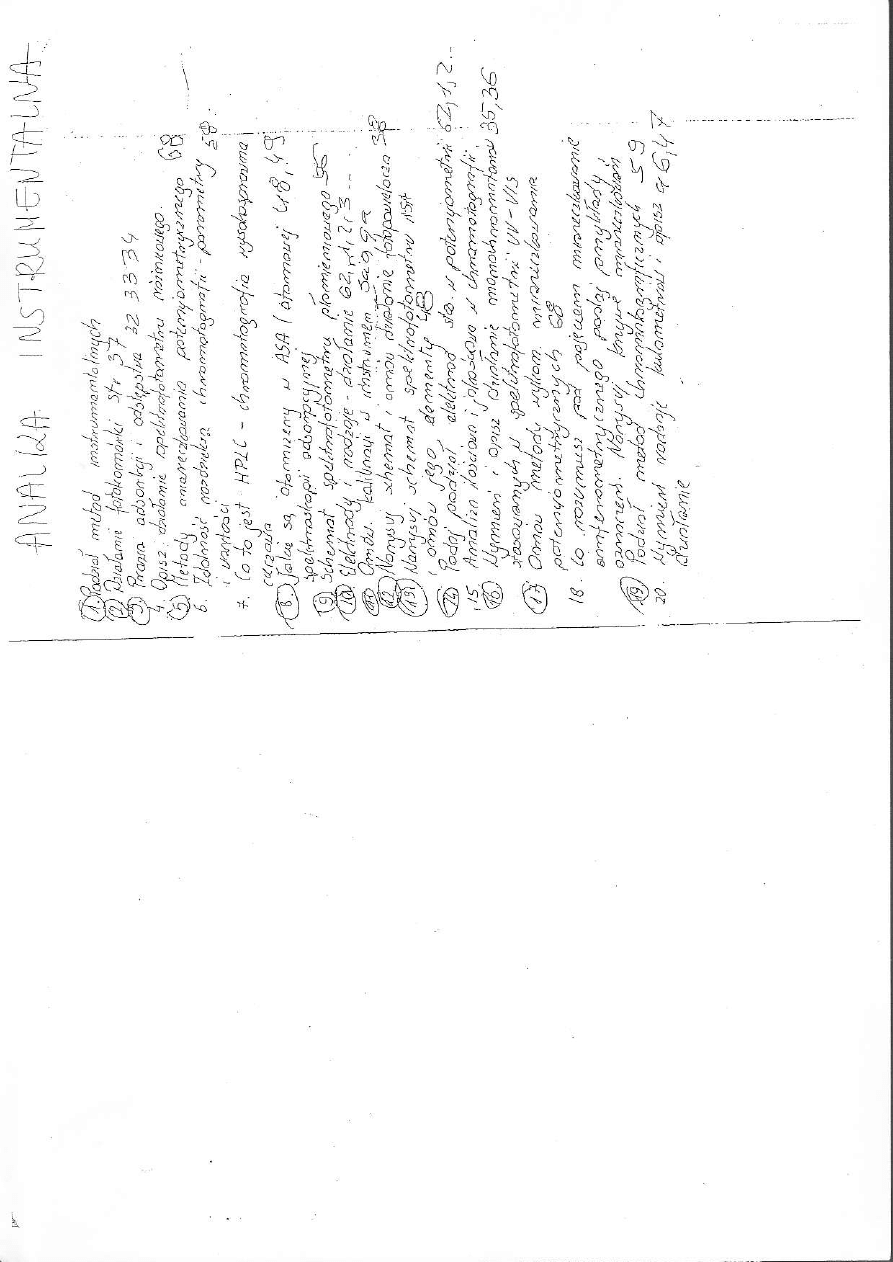 ANALIZA INSTRUMENTALNA
1. Podział metod instrumentalnych
2. Działanie fotokomórki str 37
3. Prawa adsorbcji i odstępstwa 32 33 34
4. Opisz działanie spektrofotometru różnicowego.
5. Metody miareczkowania potencjometrycznego 68
6. Zdolność rozdzielcza chromatografii - parametry 58
i wartości
7. Co to jest HPLC - chromatografia wysokosprawna
cieczowa
8. Jakie są atomizery w ASA (atomowej 48, 49
spektroskopii adsorpcyjnej
9. Schemat spektrofotometru płomieniowego 56
10. Elektrody i rodzaje - działanie 62, 1, 2, 3 ...
11. Omów kalibrację w instrumen
12. Narysuj schemat i omów działanie fotopowielacza 38
13. Narysuj schemat spektrofotometru ASA
i omów jego elementy 48
14. Podaj podział elektrod sto. w potencjometrii 62, 1, 2 ...
15. Analiza ilościowa i jakościowa w chromatografii
16. Wymień i opisz działanie monochromatorów 35, 36
stosowanych w spektrofotometrii UV-VIS
17. Omów metody wykon. miareczkowania
potencjometrycznych 68
18. Co rozumiesz pod pojęciem miareczkowanie
amperometrycznego podaj przykłady i
Narysuj krzywe miareczkowań
19. Podział metod chromatograficznych 59
20. Wymień rodzaje kulometrii i opisz 46, 47
działanie